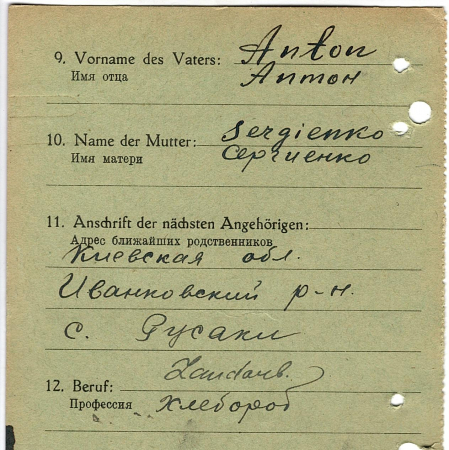 9. Vorname des Vaters: Anton
Имя отца Антон
10. Name der Mutter: Sergienko
Имя матери Сергиенко
11. Anschrift der nächsten Angehörigen:
Адрес ближайших родственников
Киевская обл.
Иванковский р-н.
с. Русаки
Landarb.
12. Beruf:
Профессия хлебороб